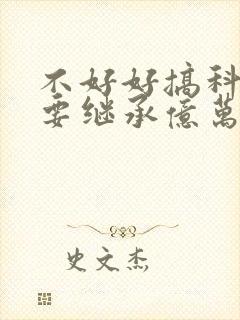 不好好搞科
要继承億萬
史文杰